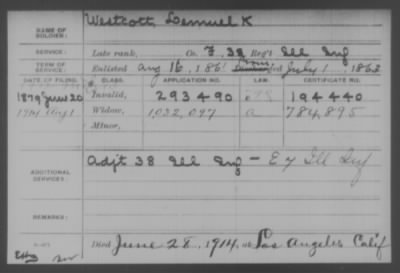 NAME OF SOLDIER: Westcott, Lemuel K
SERVICE: Late rank, Co. F, 38 Reg't Ill Inf
TERM OF SERVICE: Enlisted Aug 16, 1861 July 1, 1863
DATE OF FILING. CLASS. APPLICATION NO. LAW. CERTIFICATE NO.
1879 June 20 Invalid, 293490 194440
1914 Aug 1 Widow, 1032,097 a 784,895
Minor,
ADDITIONAL SERVICES: Adjt 38 Ill Inf - E 7 Ill Inf
REMARKS:
Died June 28, 1914, at Los Angeles Calif